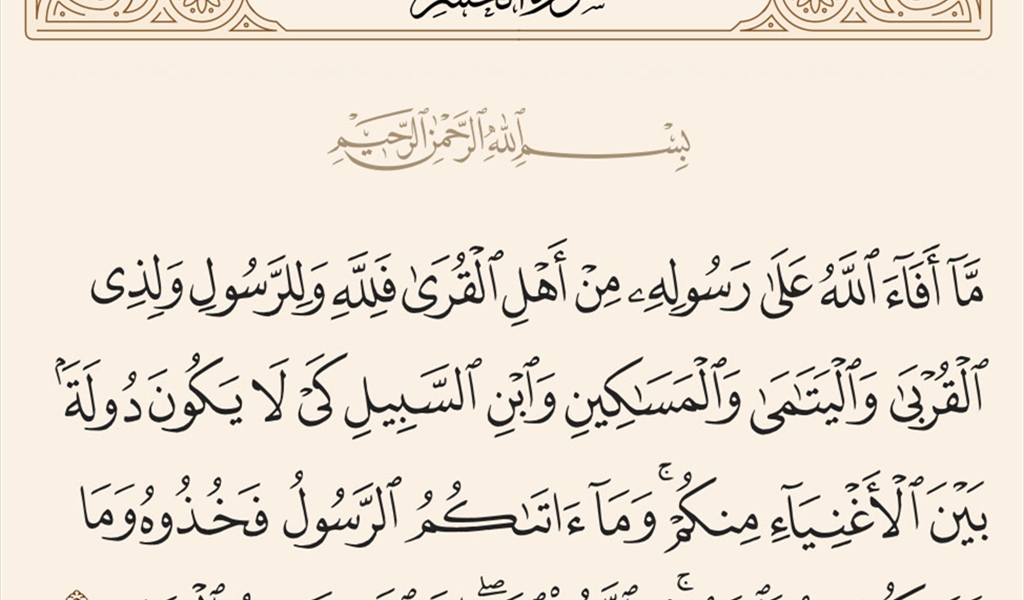 سورة الحشر
بِسْمِ ٱللَّهِ ٱلرَّحْمَٰنِ ٱلرَّحِيمِ
مَّآ أَفَآءَ ٱللَّهُ عَلَىٰ رَسُولِهِۦ مِنْ أَهْلِ ٱلْقُرَىٰ فَلِلَّهِ وَلِلرَّسُولِ وَلِذِى
ٱلْقُرْبَىٰ وَٱلْيَتَٰمَىٰ وَٱلْمَسَٰكِينِ وَٱبْنِ ٱلسَّبِيلِ كَىْ لَا يَكُونَ دُولَةًۢ
بَيْنَ ٱلْأَغْنِيَآءِ مِنكُمْ ۚ وَمَآ ءَاتَىٰكُمُ ٱلرَّسُولُ فَخُذُوهُ وَمَا